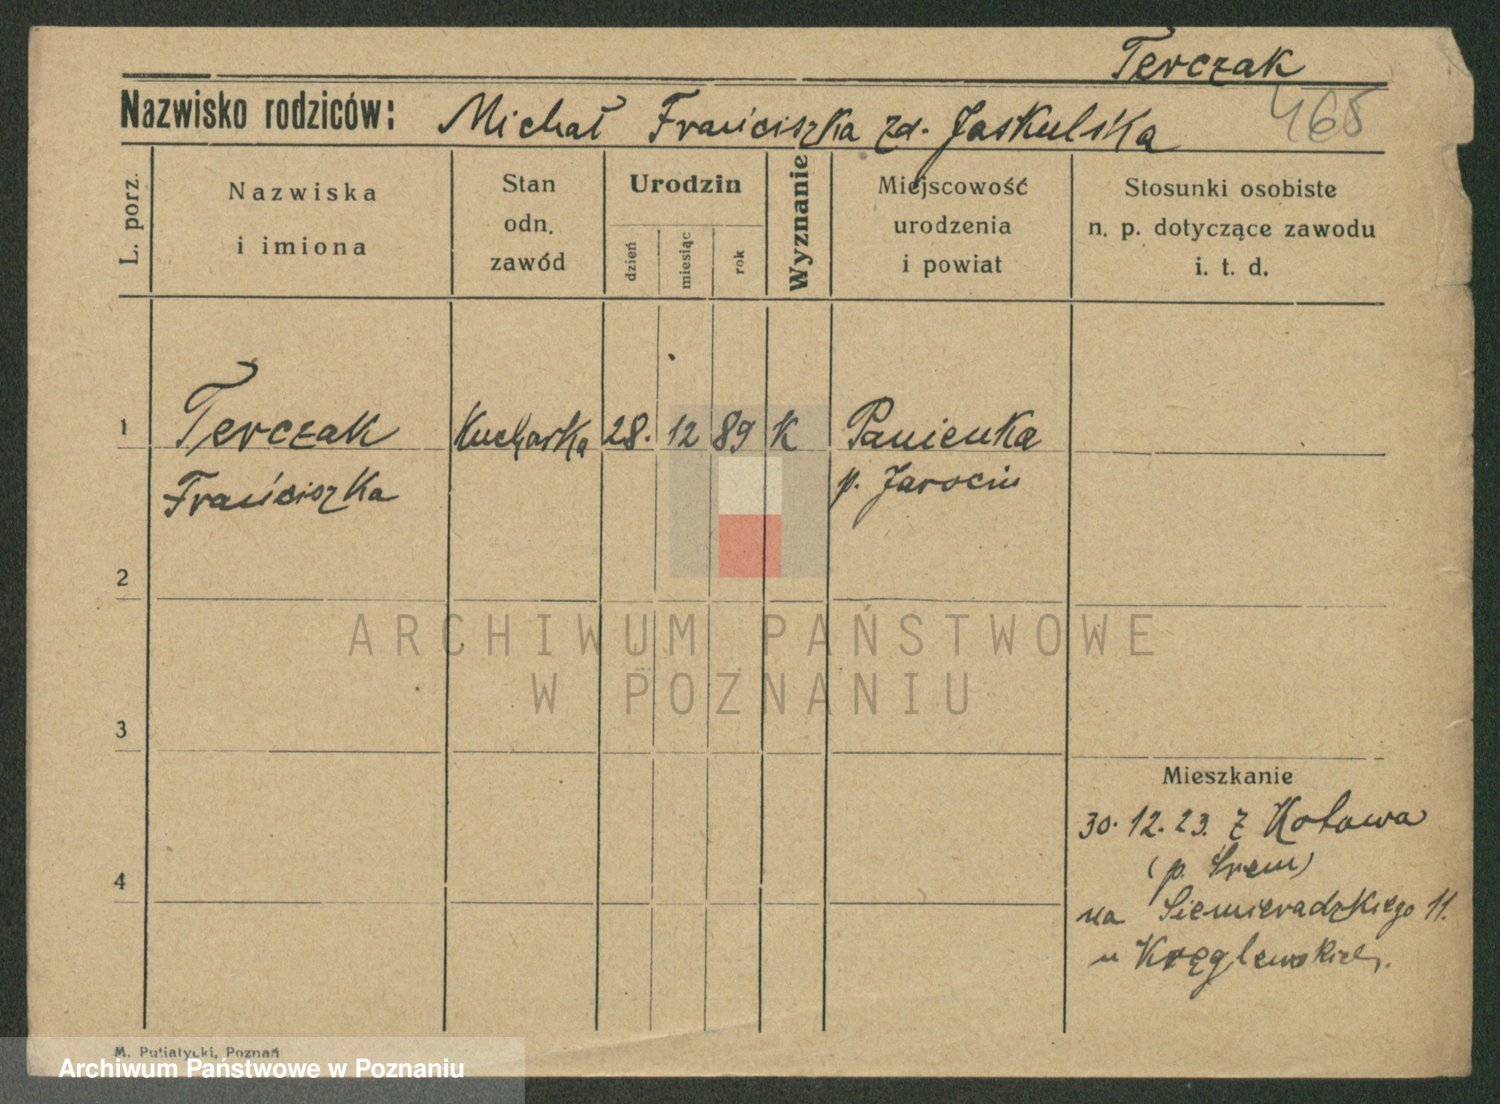 Terczak
465
Nazwisko rodziców: Michał Franciszka zd. Jaskulska
L. porz.
Nazwiska
i imiona
Stan
odn.
zawód
Urodzin
dzień
miesiąc
rok
Wyznanie
Miejscowość
urodzenia
i powiat
Stosunki osobiste
n. p. dotyczące zawodu
i. t. d.
1
Terczak
Franciszka
Kucharka
28.
12
89
K
Panienka
p. Jarocin
2
3
4
Mieszkanie
30.12.23. z Kotowa
(p. Śrem)
na Siemieradzkiego 11.
u Kręglewskiej.
M. Putiatycki, Poznań
ARCHIWUM PAŃSTWOWE
W POZNANIU
Archiwum Państwowe w Poznaniu